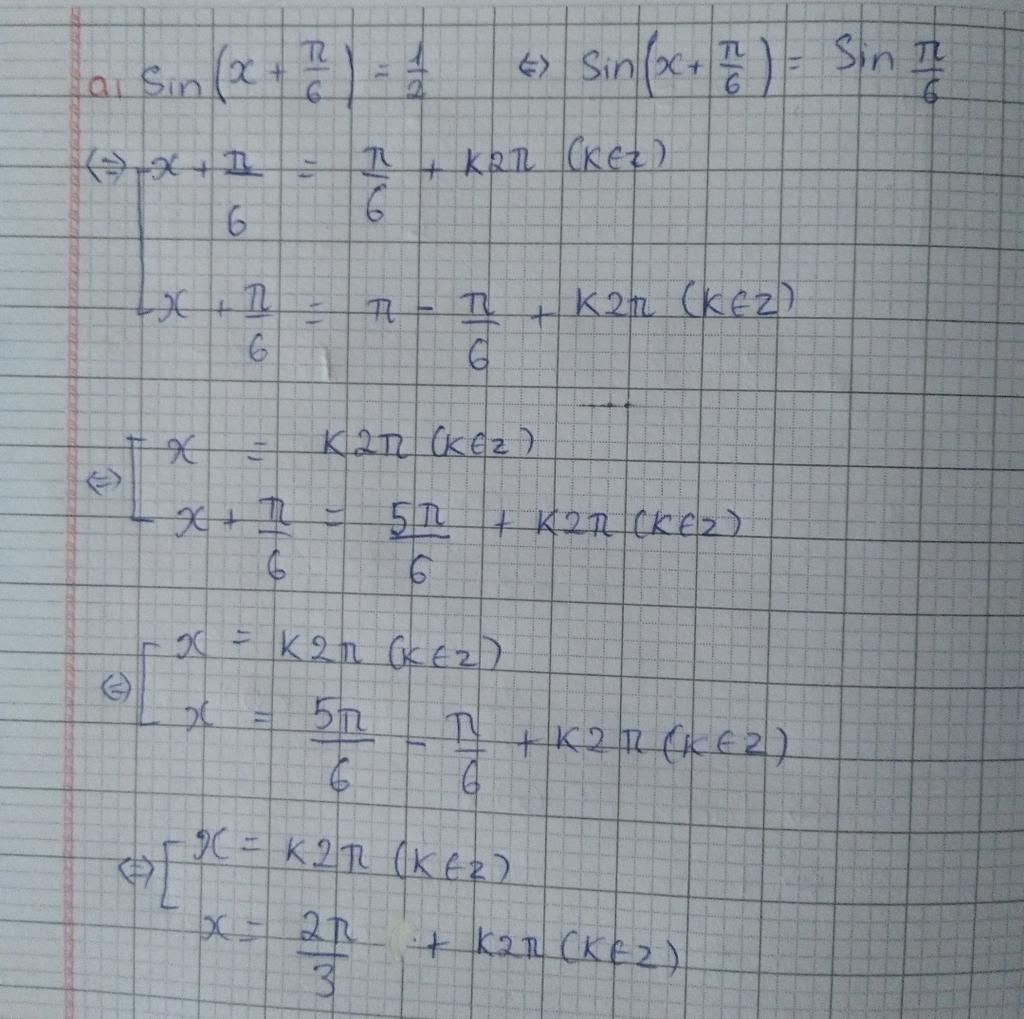 a, Sin(x + π/6) = 1/2 ⇔ Sin(x + π/6) = Sin π/6
⇔ [ x + π/6 = π/6 + K2π (K∈z)
x + π/6 = π - π/6 + K2π (K∈z)
⇔ [ x = K2π (K∈z)
x + π/6 = 5π/6 + K2π (K∈z)
⇔ [ x = K2π (K∈z)
x = 5π/6 - π/6 + K2π (K∈z)
⇔ [ x = K2π (K∈z)
x = 2π/3 + K2π (K∈z)